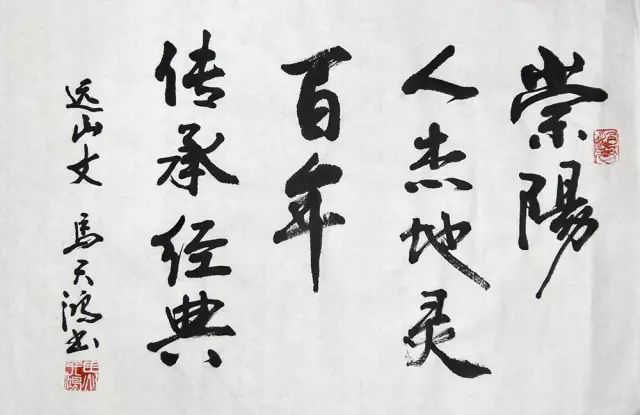 崇陽
人杰地灵
百年
传承经典
远山文 马天鸿书